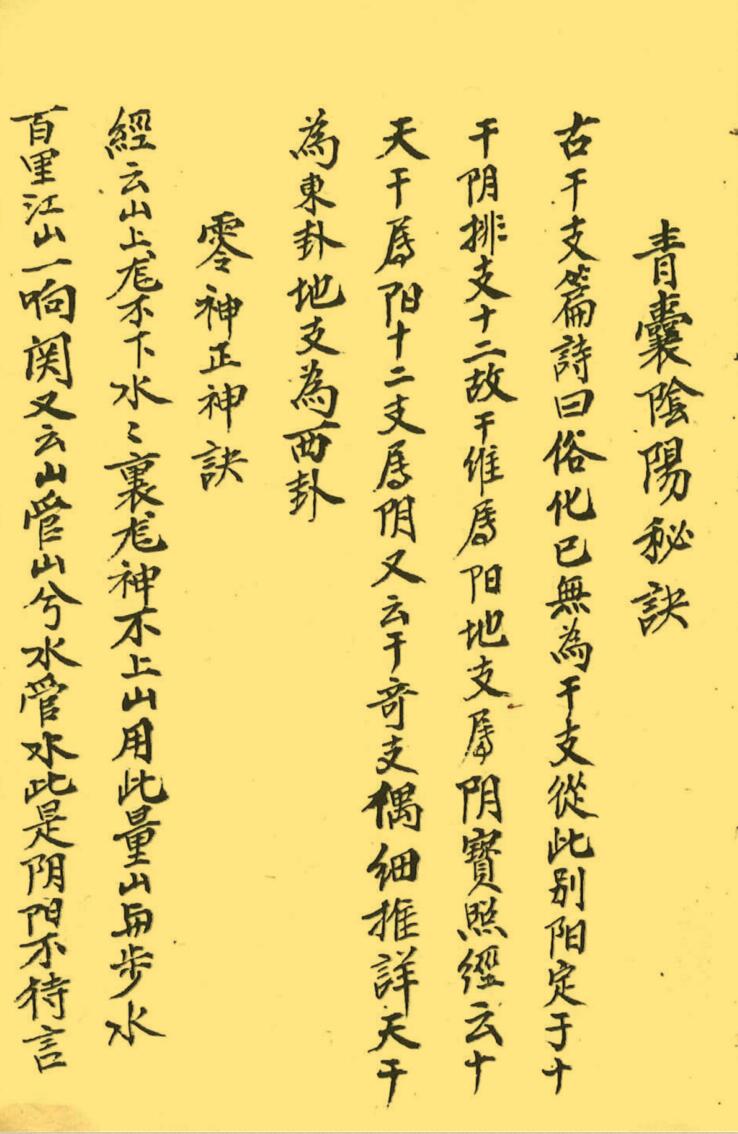 青囊陰陽秘訣
古干支篇詩曰俗化已無為干支從此別阳定于十
干阴排支十二故干維属阳地支属阴寶照經云十
天干属阳十二支属阴又云干奇支偶细推詳天干
為東卦地支為西卦
零神正神訣
經云山上龙不下水〻裏龙神不上山用此量山与步水
百里江山一响関又云山管山兮水管水此是阴阳不待言